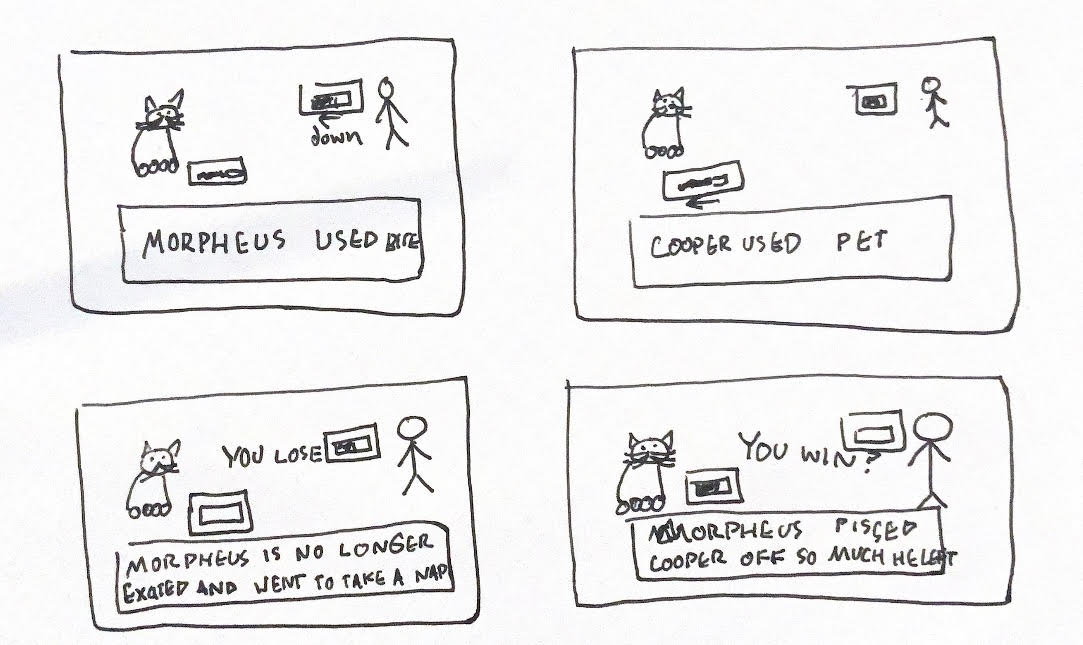 down
MORPHEUS USED BITE
COOPER USED PET
YOU LOSE
MORPHEUS IS NO LONGER
EXCITED AND WENT TO TAKE A NAP
YOU WIN?
MORPHEUS PISSED
COOPER OFF SO MUCH HE LEFT